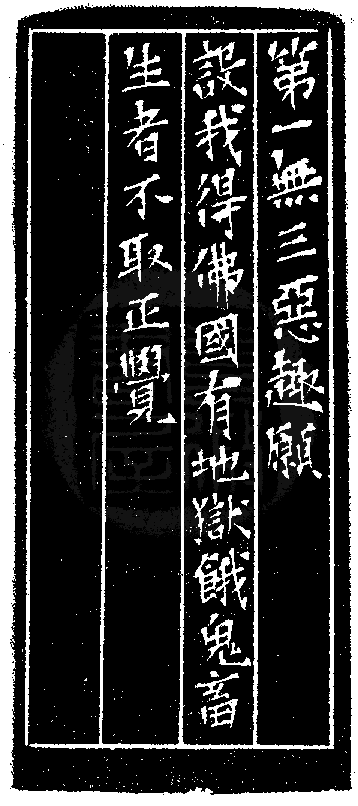 第一無三惡趣願
設我得佛國有地獄餓鬼畜
生者不取正覺